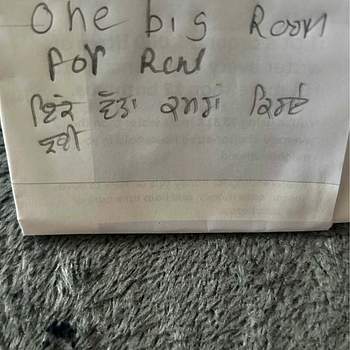 One big Room
For Rent
ਇਕ ਵੱਡਾ ਕਮਰਾਂ ਕਿਰਾਏ
ਲਈ